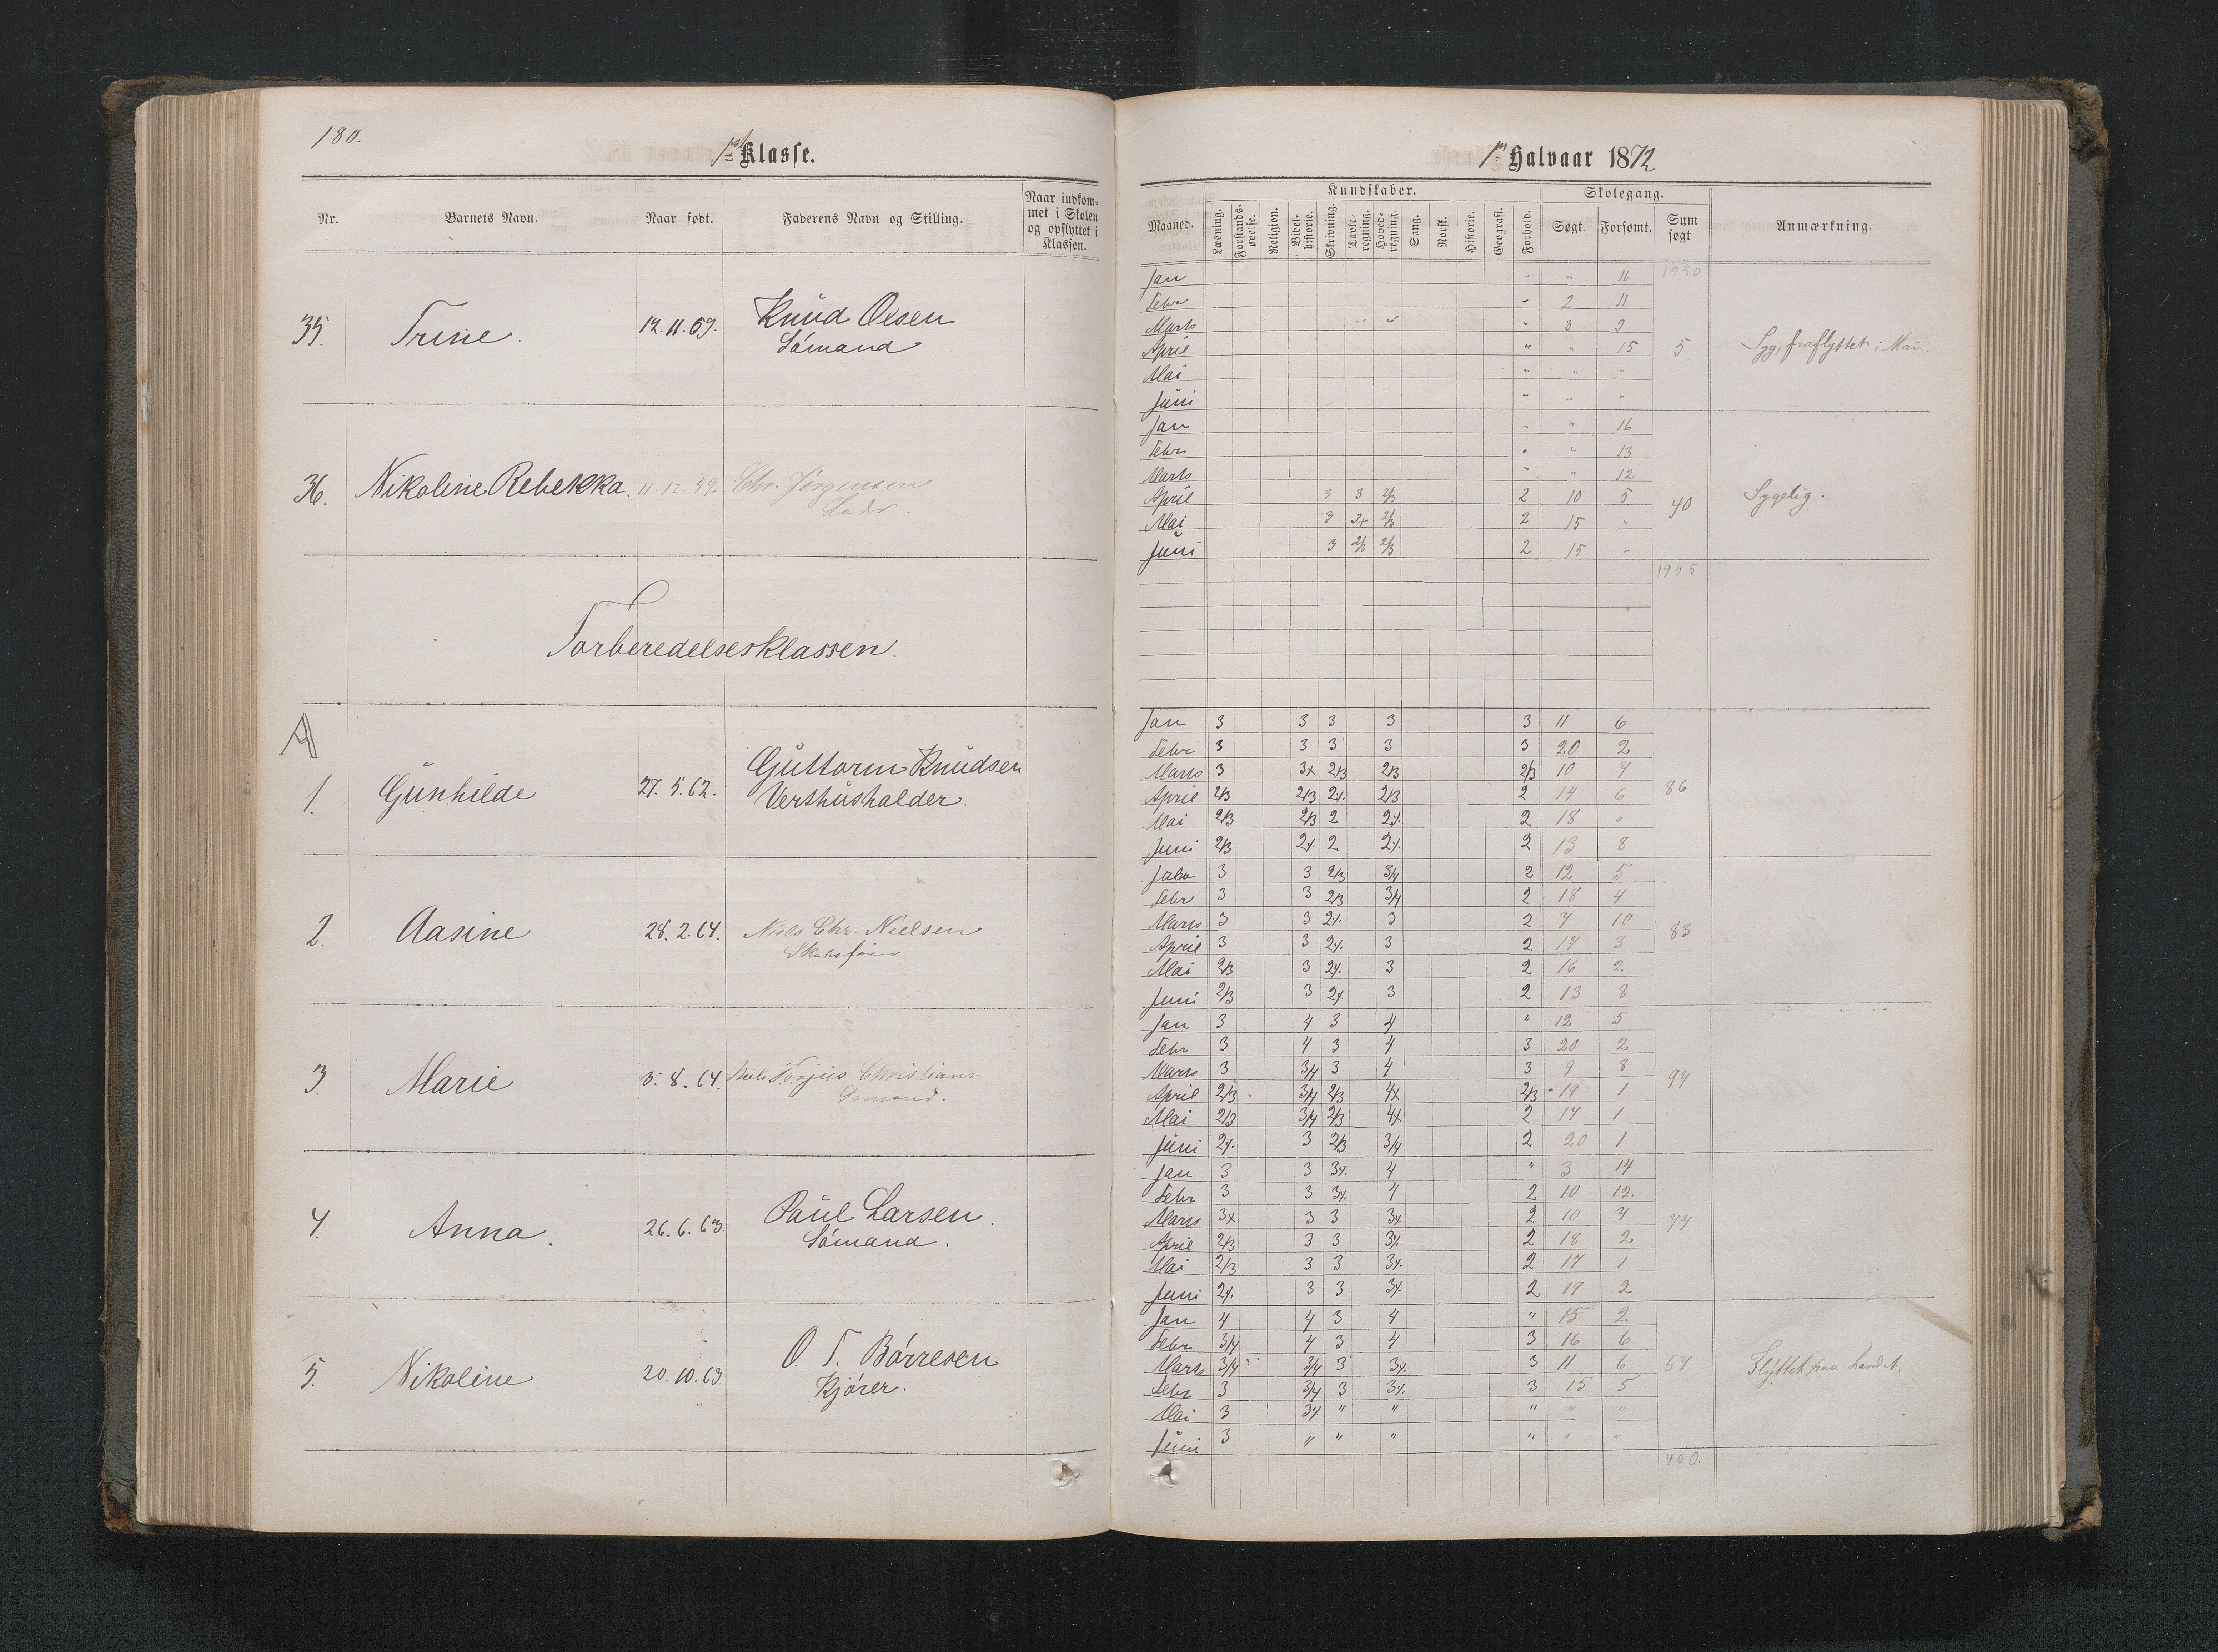 180.
1ste Klasse.
Nr. Barnets Navn. Naar født. Faderens Navn og Stilling. Naar indkom-
met i Skolen
og opflyttet i
Klassen.
35. Trine. 12.11.59. Knud Olsen
Sømand
36. Nikoline Rebekka. 11.12.59. Chr. Jørgensen
Lods.
Forberedelsesklassen.
A
1. Gunhilde 27.5.62. Guttorm Knudsen
Vertshusholder.
2. Aasine 28.2.64. Niels Chr. Nielsen
Skibsfører
3. Marie 5.8.64. Niels Torjus Christians
Sømand.
4. Anna. 26.6.63. Paul Larsen.
Sømand.
5. Nikoline 20.10.63. O. T. Børresen
Kjører.
1ste Halvaar 1872
Kundskaber. Skolegang.
Maaned. Læsning. Forstands-
øvelse. Religion. Bibel-
historie. Skrivning. Tavle-
regning. Hoved-
regning. Sang. Norsk. Historie. Geografi. Forhold. Søgt. Forsømt. Sum
søgt Anmærkning.
Jan " " 16 1950
Febr " 2 11
Marts " 3 9
April " " 15 5 Syg, fraflyttet i Mai.
Mai " " "
Juni " " "
Jan " " 16
Febr " " 13
Marts " " 12
April 3 3 2/3 2 10 5 40 Sygelig.
Mai 3 3+ 2/3 2 15 "
Juni 3 2/3 2/3 2 15 "
1995
Jan 3 3 3 3 3 11 6
Febr 3 3 3 3 3 20 2
Marts 3 3x 2/3 2/3 2/3 10 7
April 2/3 2/3 2% 2/3 2 14 6 86
Mai 2/3 2/3 2 2% 2 18 "
Juni 2/3 2% 2 2% 2 13 8
Jan 3 3 2/3 3/4 2 12 5
Febr 3 3 2/3 3/4 2 18 4
Marts 3 3 2% 3 2 7 10 83
April 3 3 2% 3 2 17 3
Mai 2/3 3 2% 3 2 16 2
Juni 2/3 3 2% 3 2 13 8
Jan 3 4 3 4 " 12 5
Febr 3 4 3 4 3 20 2
Marts 3 3/4 3 4 3 9 8 97
April 2/3 3/4 2/3 4x 2/3 19 1
Mai 2/3 3/4 2/3 4x 2 17 1
Juni 2% 3 2/3 3/4 2 20 1
Jan 3 3 3% 4 " 3 14
Febr 3 3 3% 4 2 10 12
Marts 3x 3 3 3x 2 10 7 77
April 2/3 3 3 3% 2 18 2
Mai 2/3 3 3 3% 2 17 1
Juni 2% 3 3 3% 2 19 2
Jan 4 4 3 4 " 15 2
Febr 3/4 4 3 4 3 16 6
Marts 3/4 3/4 3 3% 3 11 6 57 Flyttet paa Landet.
Febr 3 3/4 3 3% 3 15 5
Mai 3 3% " " " " "
Juni 3 " " " " " "
400.